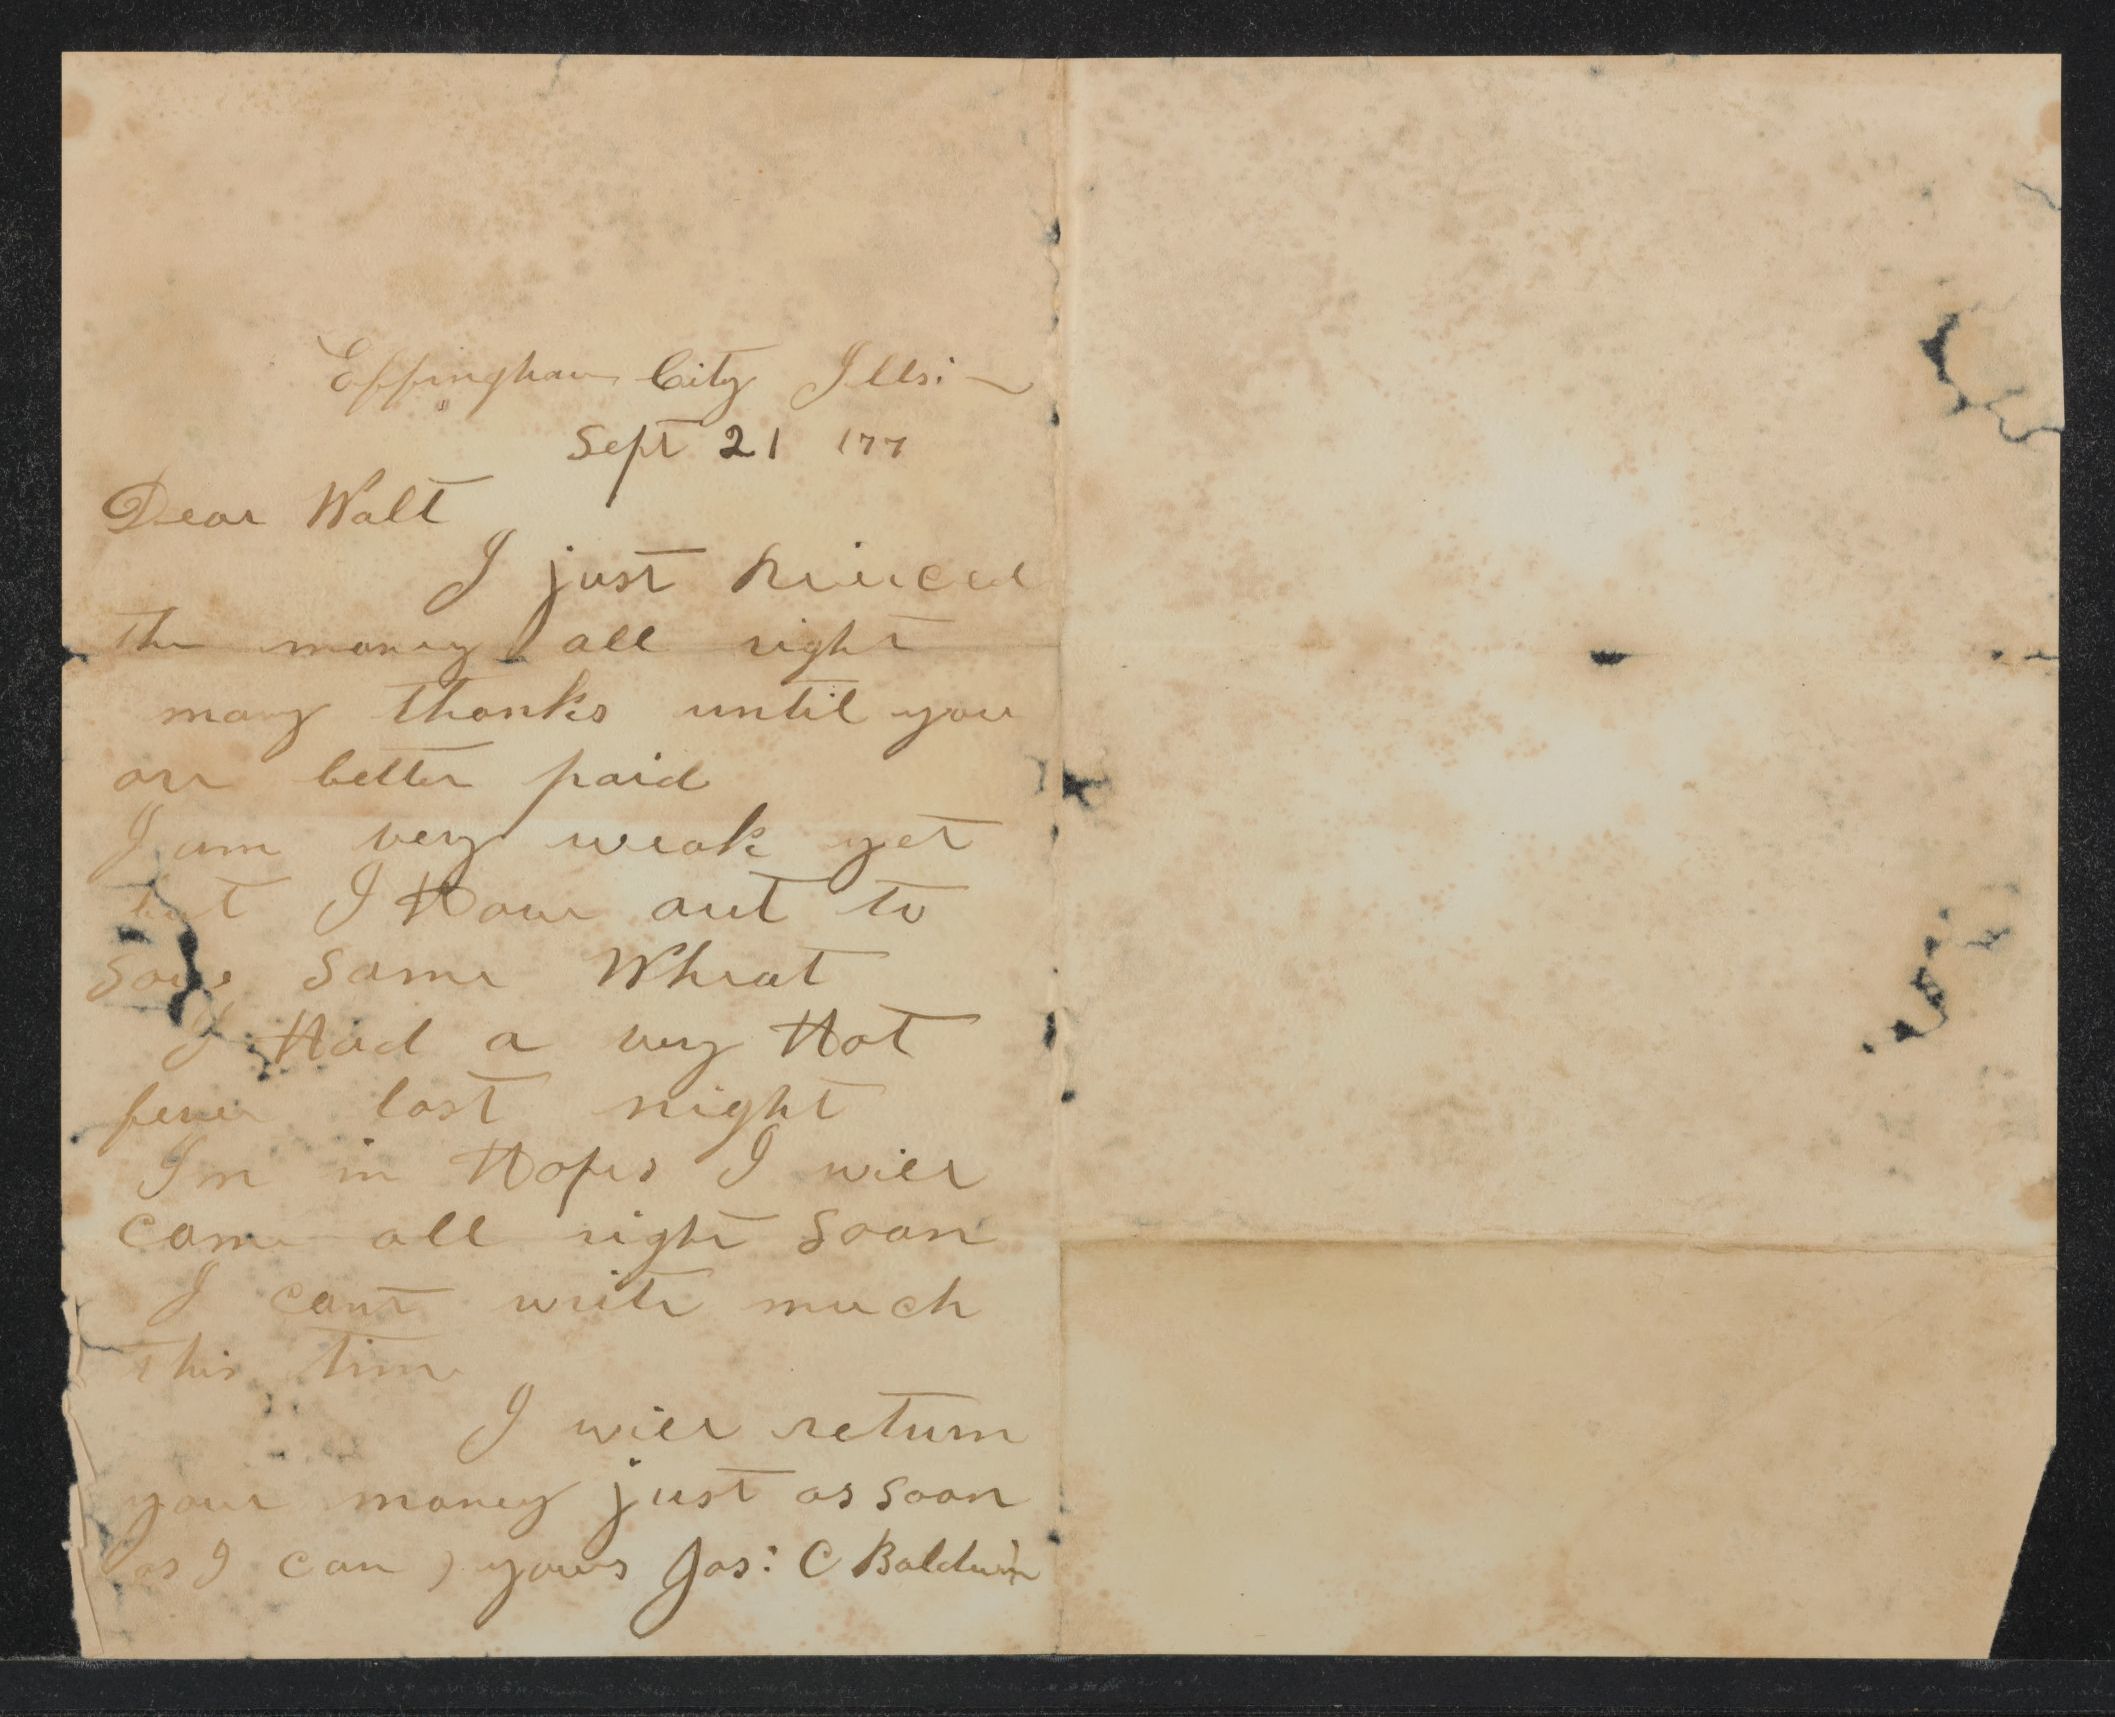 Effingham City Ills:
Sept 21 /77
Dear Walt
I just
the money all right
many thanks until you
are better paid
I am very weak yet
but I Have out to
sow some Wheat
I Had a very Hot
fever last night
Im in Hopes I will
come all right soon
I cant write much
this time
I will return
your money just as soon
as I can, yours Jos: C Baldwin